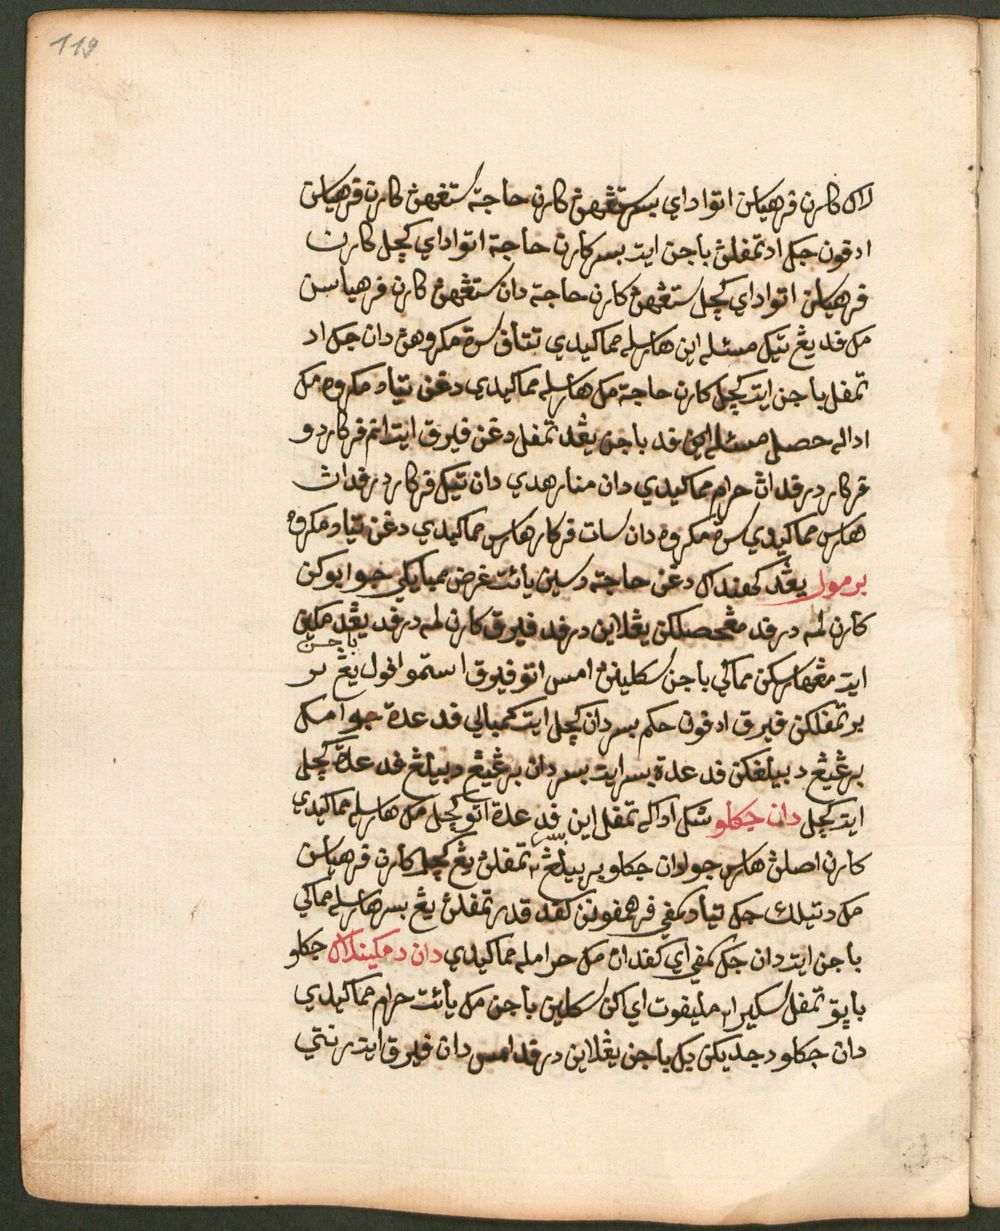 119
لاݢ كارن فرهياسن اتواداي بسر ستڠهن كارن حاجة ستڠهن كارن فرهياسن
ادفون جك اد تمفلن باجن ايت بسر كارن حاجة اتواداي كچل كارن
فرهياسن اتواداي كچل ستڠهن كارن حاجة دان ستڠهن كارن فرهياسن
مك فد يڠ تيݢ مسئله اين هارسله مماكيدي تتافي سرة مكروهن دان جك اد
تمفل باجن ايت كچل كارن حاجة مك هارسله مماكيدي دڠن تياد مكروه مك
اداله حصل مسئله اين فد باجن يڠد تمفل دڠن فيرق ايت انم فركار دو
فركار درفدان حرام مماكيدي دان منارهدي دان تيݢ فركار درفدان
هارس مماكيدي سرة مكروه دان سات فركار هارس مماكيدي دڠن تياد مكروه
برمول يڠد كهنداك دڠن حاجة دسين يائت غرض ممبايكي جوا بوكن
كارن لمه درفد مڠحصلكن يڠلاين درفد فيرق كارن لمه درفد يڠد مكين
ايت مڠهارسكن مماكي باجن سكلين امس اتو فيرق استموا فول يڠ
باجن
برتمفلكن فيرق ادفون حكم بسر دان كچل ايت كمبالي فد عدة جوا مك
برڠيڠ دبيلڠكن فد عدة بسر ايت بسر دان برڠيڠ دبيلڠ فد عدة كچل
ايت كچل دان جكلو شك اداكه تمفل اين فد عدة اتو كچل مك هارسله مماكيدي
بسر
كارن اصلن هارس جوا دان جكلو بربيلڠ٢ تمفلن يڠ كچل كارن فرهياسن
مك دتيلك جك تياد مڠفي فرهمفونن كفد قدر تمفلن يڠ بسر هارسله مماكي
باجن ايت دان جك مڠفي اي كفدان مك حرامله مماكيدي دان دمكينلاݢ جكلو
باپق تمفل سكيرا٢ مليفوت اي اكن سكلين باجن مك يائت حرام مماكيدي
دان جكلو دجديكن بݢ باجن يڠلاين درفد امس دان فيرق ايت رنتي